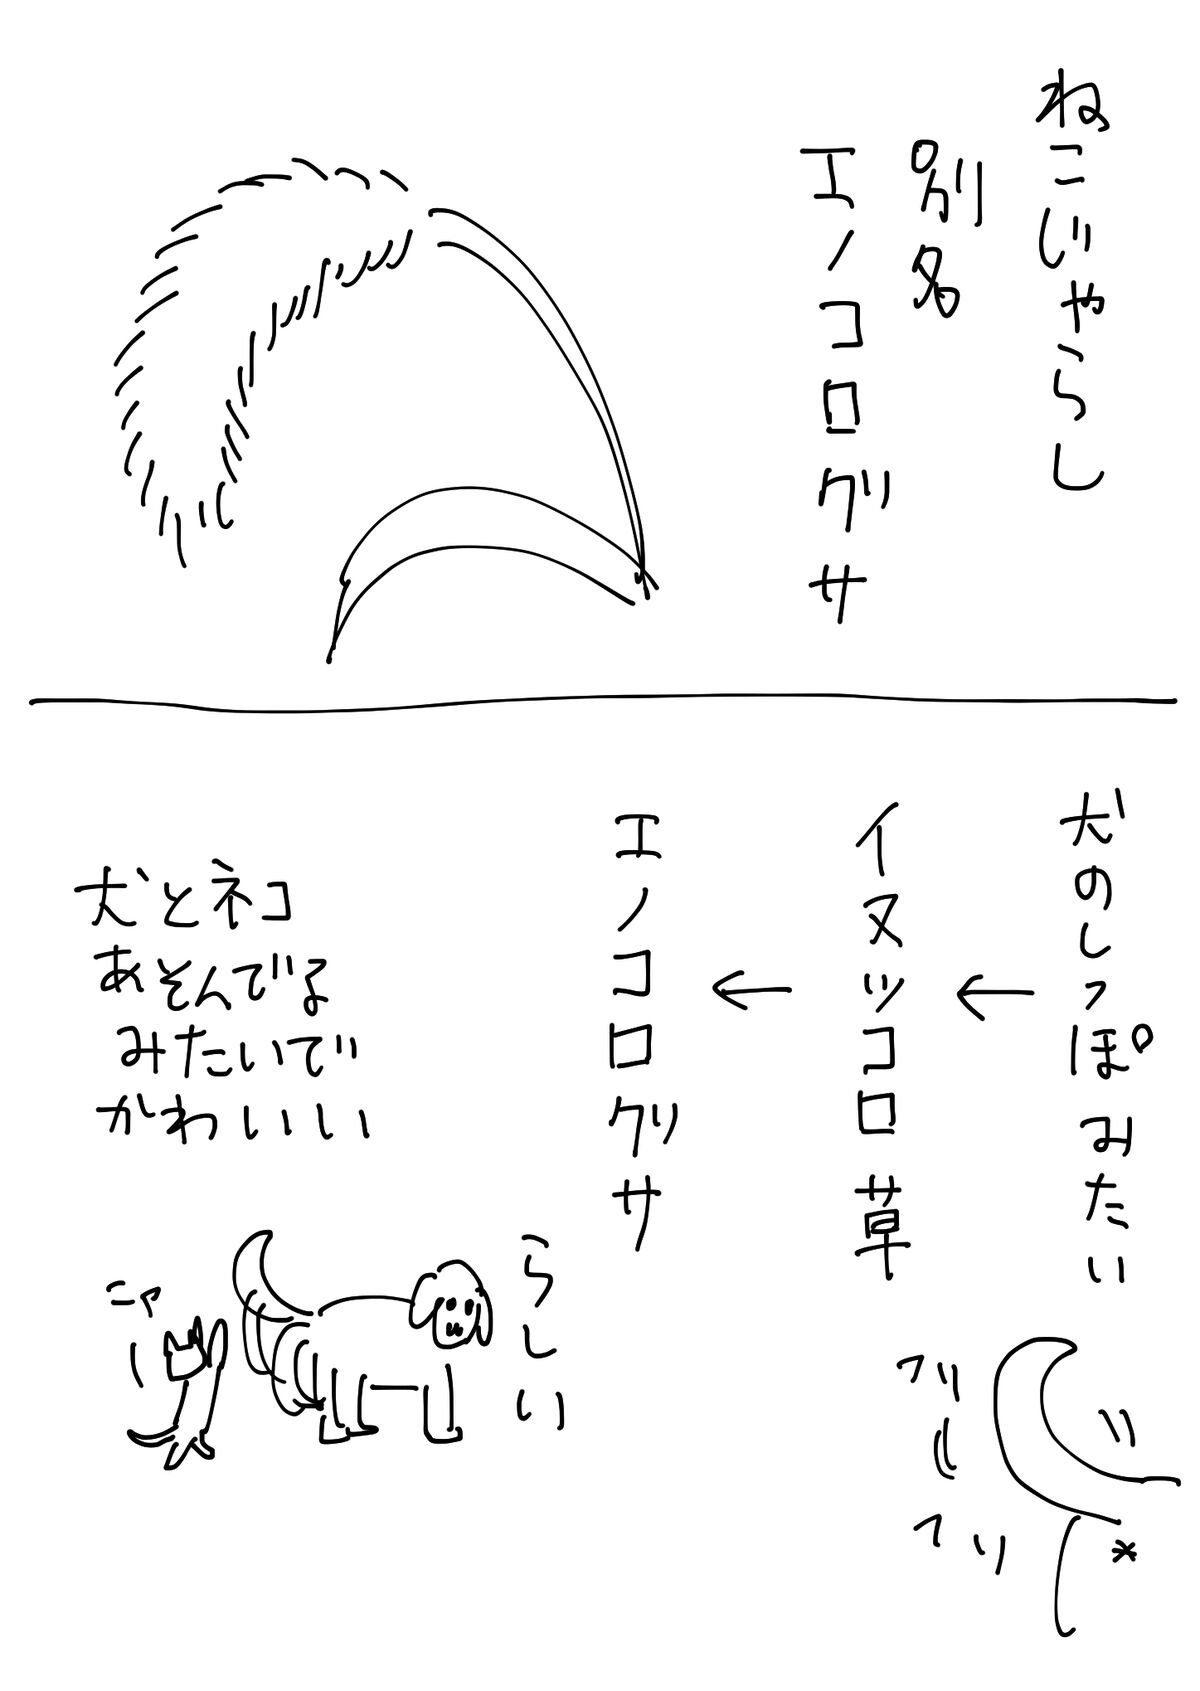 ねこじゃらし
別名
エノコログサ
犬のしっぽみたい
イヌッコロ草
エノコログサ
らしい
犬とネコ
あそんでる
みたいで
かわいい
ニャー
フリ
フリ